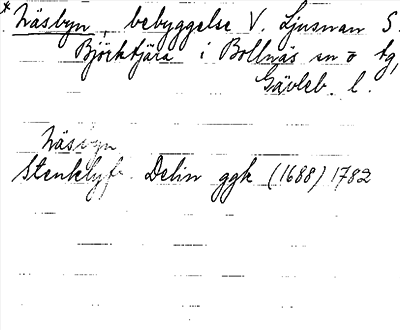 * Näsbyn, bebyggelse V. Ljusnan S.
Björktjära i Bollnäs sn o tg,
Gävleb. l.
Näsbyn
Stenklyft. Delin ggk (1688) 1782